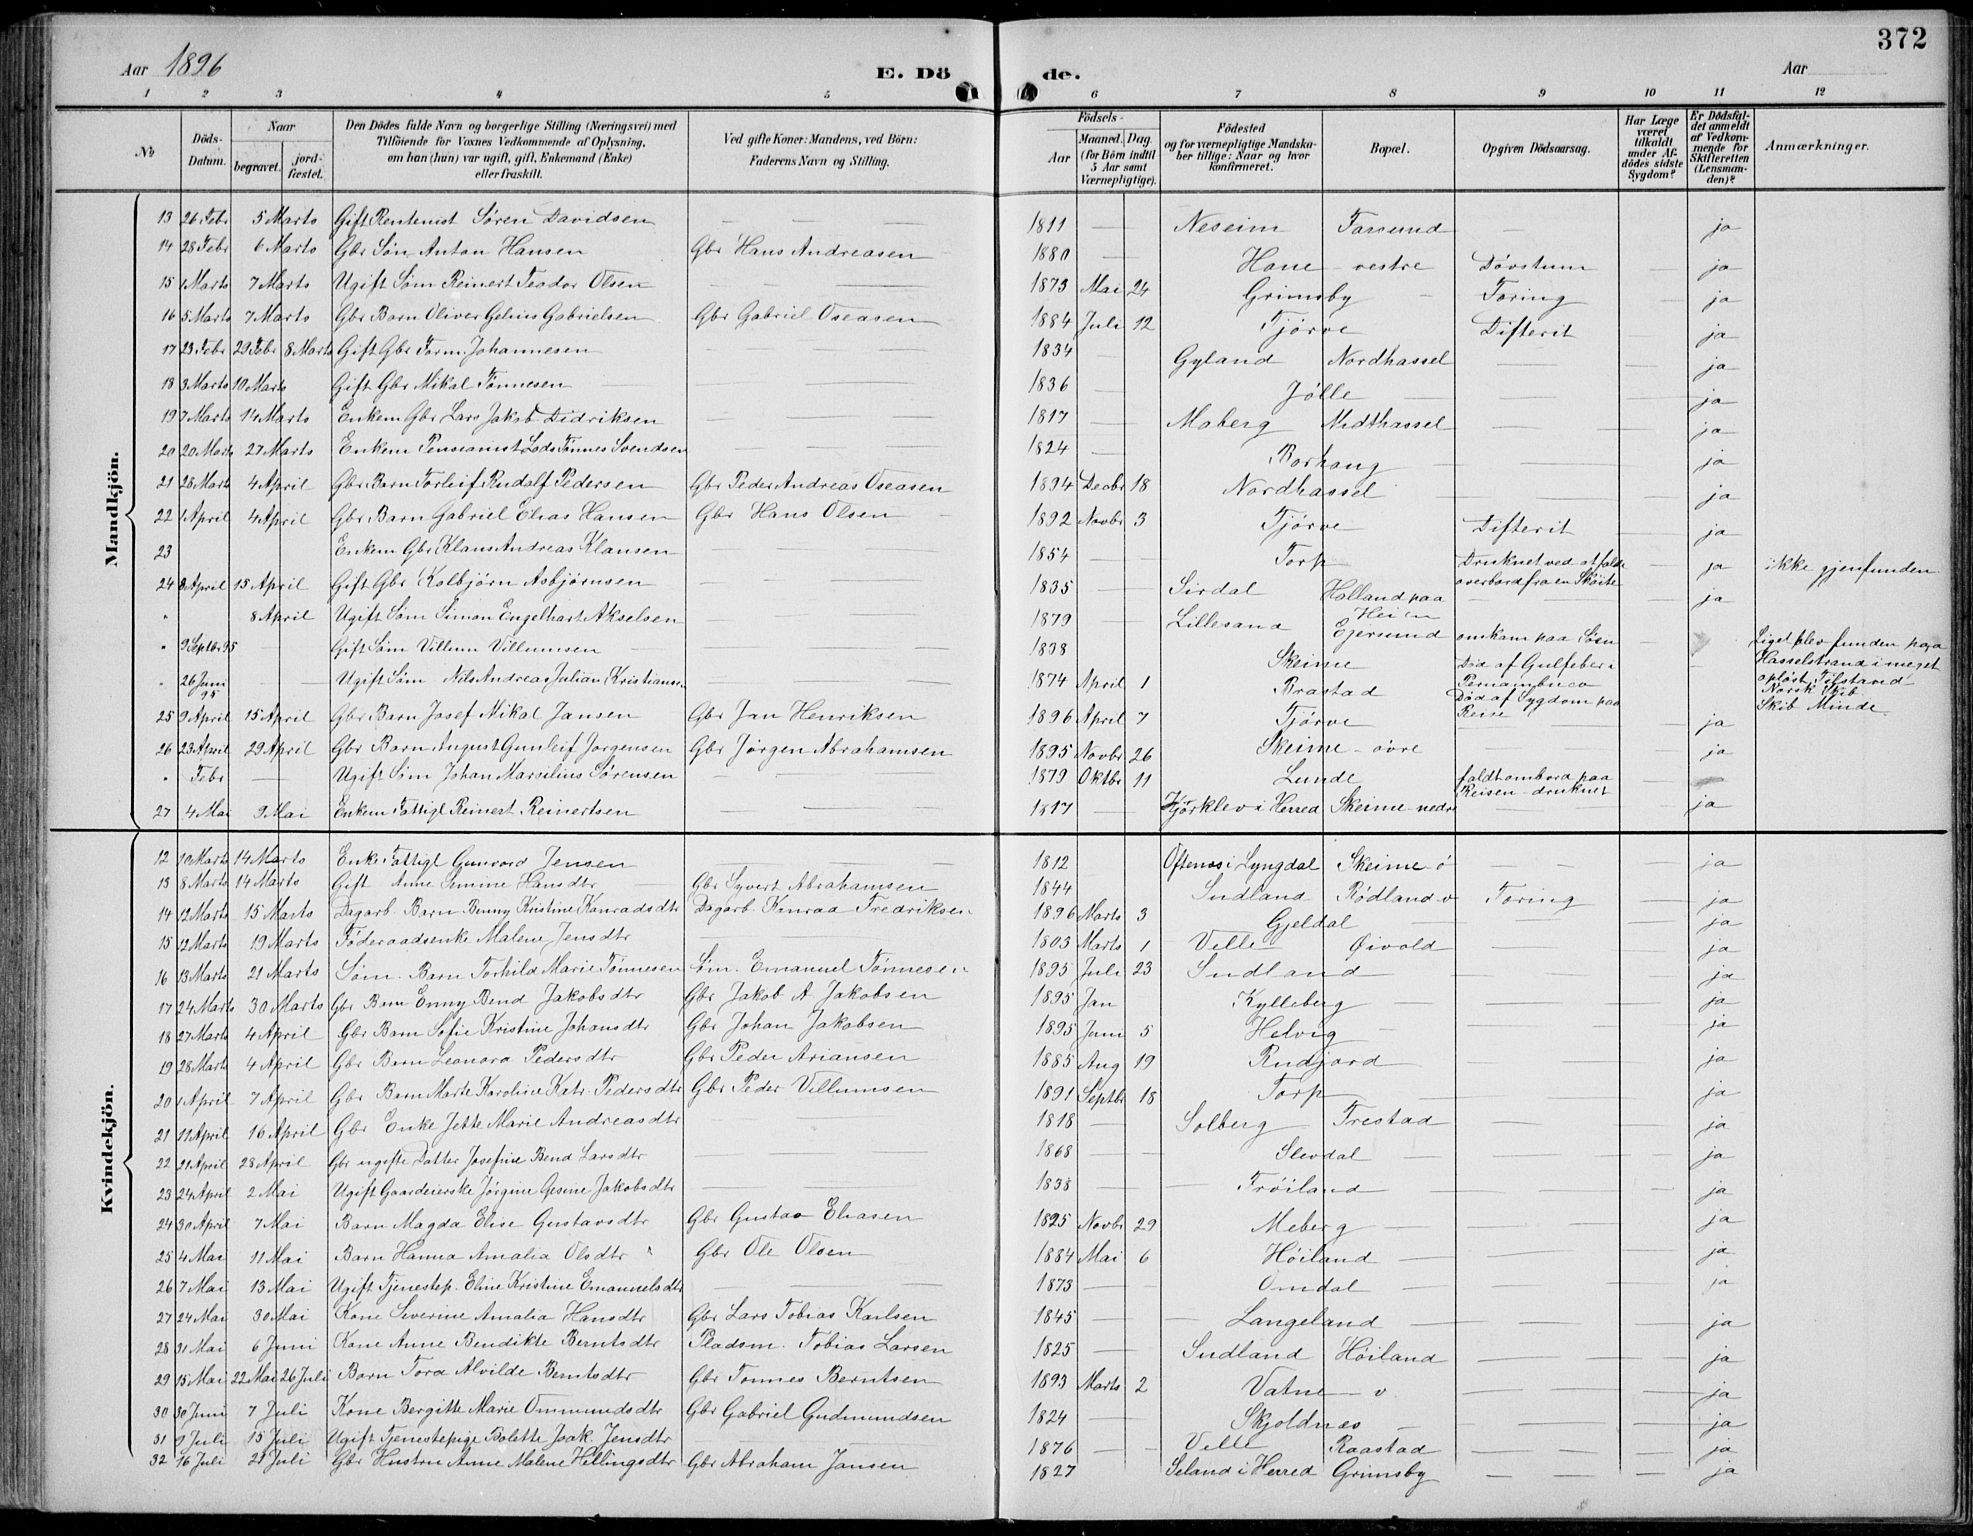 372
Aar 1896
E. Döde.
Aar
1 2 3 4 5 6 7 8 9 10 11 12
No
Döds-Datum.
Naar
begravet.
jord-fæstet.
Den Dödes fulde Navn og borgerlige Stilling (Næringsvei) med Tilföiende for Voxnes Vedkommende af Oplysning, om han (hun) var ugift, gift, Enkemand (Enke) eller fraskilt.
Ved gifte Koner: Mandens, ved Börn: Faderens Navn og Stilling.
Födsels-
Aar
Maaned. Dag.
(for Börn indtil 5 Aar samt Værnepligtige).
Födested og for værnepligtige Mandskaber tillige: Naar og hvor konfirmeret.
Bopæl.
Opgiven Dödsaarsag.
Har Læge været tilkaldt under Afdödes sidste Sygdom?
Er Dödsfaldet anmeldt af Vedkommende for Skifteretten (Lensmanden)?
Anmærkninger.
Mandkjön.
13 26 Febr 5 Marts Gift Rentenist Søren Davidsen 1811 Neseim Farsund ja
14 28 Febr 6 Marts Gbr Søn Anton Hansen Gbr Hans Andreasen 1880 Hane vestre Dövstum ja
15 1 Marts 7 Marts Ugift Søm Reinert Teodor Olsen 1873 Mai 24 Grimsby Tæring ja
16 5 Marts 7 Marts Gbr Barn Oliver Gelius Gabrielsen Gbr Gabriel Oseasen 1884 Juli 12 Tjørve Difterit ja
17 23 Febr 29 Febr 8 Marts Gift Gbr Torm Johannesen 1834 Gyland Nordhassel ja
18 3 Marts 10 Marts Gift Gbr Mikal Tønnesen 1836 Jølle ja
19 7 Marts 14 Marts Enkem Gbr Lars Jakob Didriksen 1817 Maberg Midthassel ja
20 20 Marts 27 Marts Enkem Pensionist Lods Tønnes Svendsen 1824 Borhaug ja
21 28 Marts 4 April Gbr Barn Torleif Rudolf Pedersen Gbr Peder Andreas Oseasen 1894 Decbr 18 Nordhassel ja
22 1 April 4 April Gbr Barn Gabriel Elias Hansen Gbr Hans Olsen 1892 Novbr 3 Tjørve Difterit ja
23 Enkem Gbr Klaus Andreas Klausen 1854 Torp Druknet ved at falde overbord fra en Skøite ja ikke gjenfunden
24 8 April 15 April Gift Gbr Kolbjørn Asbjørnsen 1835 Sirdal Holland paa Heien ja
" 8 April Ugift Søm Simon Engelhart Akselsen 1879 Lillesand Egersund omkom paa Søen Liget blev funden paa Hasselstrand i meget opløst Tilstand
" 9 Septbr 95 Gift Søm Villum Villumsen 1838 Skeime Död af Gulfeber i Pernambuco Norsk Skib
" 26 Juni 95 Ugift Søm Nils Andreas Julian Kristians. 1874 April 1 Brastad Död af Sygdom paa Reise Skib Minde
25 9 April 15 April Gbr Barn Josef Mikal Jansen Gbr Jan Henriksen 1896 April 7 Tjørve ja
26 23 April 29 April Gbr Barn August Gunleif Jørgensen Gbr Jørgen Abrahamsen 1895 Novbr 26 Skeime øvre ja
" Febr Ugift Søm Johan Marsilius Sørensen 1879 Oktbr 11 Lunde faldt ombord paa Reisen druknet
27 4 Mai 9 Mai Enkem Fattigl Reinert Reinertsen 1817 Kjørklev i Herred Skeime nedre ja
Kvindekjön.
12 10 Marts 14 Marts Enke Fattigl Gunvord Jensen 1812 Oftenes i Lyngdal Skeime ö ja
13 8 Marts 14 Marts Gift Anne Semine Hansdtr Gbr Syvert Abrahamsen 1844 Sudland Rødland v Tæring ja
14 12 Marts 15 Marts Dagarb. Barn Benny Kristine Konradsdtr Dagarb. Konrad Fredriksen 1896 Marts 3 Gjeldal ja
15 12 Marts 19 Marts Føderaadsenke Malene Jensdtr 1803 Marts 1 Velle Øivold ja
16 13 Marts 21 Marts Søm. Barn Torhild Marie Tønnesen Søm. Emanuel Tønnesen 1895 Juli 23 Sudland ja
17 24 Marts 30 Marts Gbr Barn Enny Bend Jakobsdtr Gbr Jakob A Jakobsen 1895 Jan Kylleberg ja
18 27 Marts 4 April Gbr Barn Sofie Kristine Johansdtr Gbr Johan Jakobsen 1895 Juni 5 Helvig ja
19 28 Marts 4 April Gbr Barn Leonora Pedersdtr Gbr Peder Ariansen 1885 Aug 19 Rudjord ja
20 1 April 7 April Gbr Barn Marte Karoline Katr. Pedersdtr Gbr Peder Villumsen 1891 Septbr 18 Torp ja
21 11 April 16 April Gbr Enke Jette Marie Andreasdtr 1818 Solberg Frestad ja
22 21 April 28 April Gbr ugifte Datter Josefine Bend Larsdtr 1868 Slevdal ja
23 24 April 2 Mai Ugift Gaardeierske Jørgine Gesine Jakobsdtr 1838 Frøiland ja
24 30 April 7 Mai Barn Magda Elise Gustavsdtr Gbr Gustav Eliasen 1895 Novbr 29 Meberg ja
25 4 Mai 11 Mai Barn Hanna Amalia Olsdtr Gbr Ole Olsen 1884 Mai 6 Høiland ja
26 7 Mai 13 Mai Ugift Tjenestep. Eline Kristine Emanuelsdtr 1873 Omdal ja
27 24 Mai 30 Mai Kone Severine Amalia Hansdtr Gbr Lars Tobias Karlsen 1845 Langeland ja
28 31 Mai 6 Juni Kone Anne Bendikte Berntsdtr Pladsm. Tobias Larsen 1825 Sudland Høiland ja
29 15 Mai 22 Mai 26 Juli Barn Tora Alvilde Berntsdtr Gbr Tønnes Berntsen 1893 Marts 2 Vatne v. ja
30 30 Juni 7 Juli Kone Bergitte Marie Ommundsdtr Gbr Gabriel Gudmundsen 1824 Skjoldnes ja
31 9 Juli 15 Juli Ugift Tjenestepige Bolette Joak. Jensdtr 1876 Velle Raastad ja
32 16 Juli 21 Juli Gbr Hustru Anne Malene Hellingsdtr Gbr Abraham Jansen 1827 Seland i Herred Grimsby ja